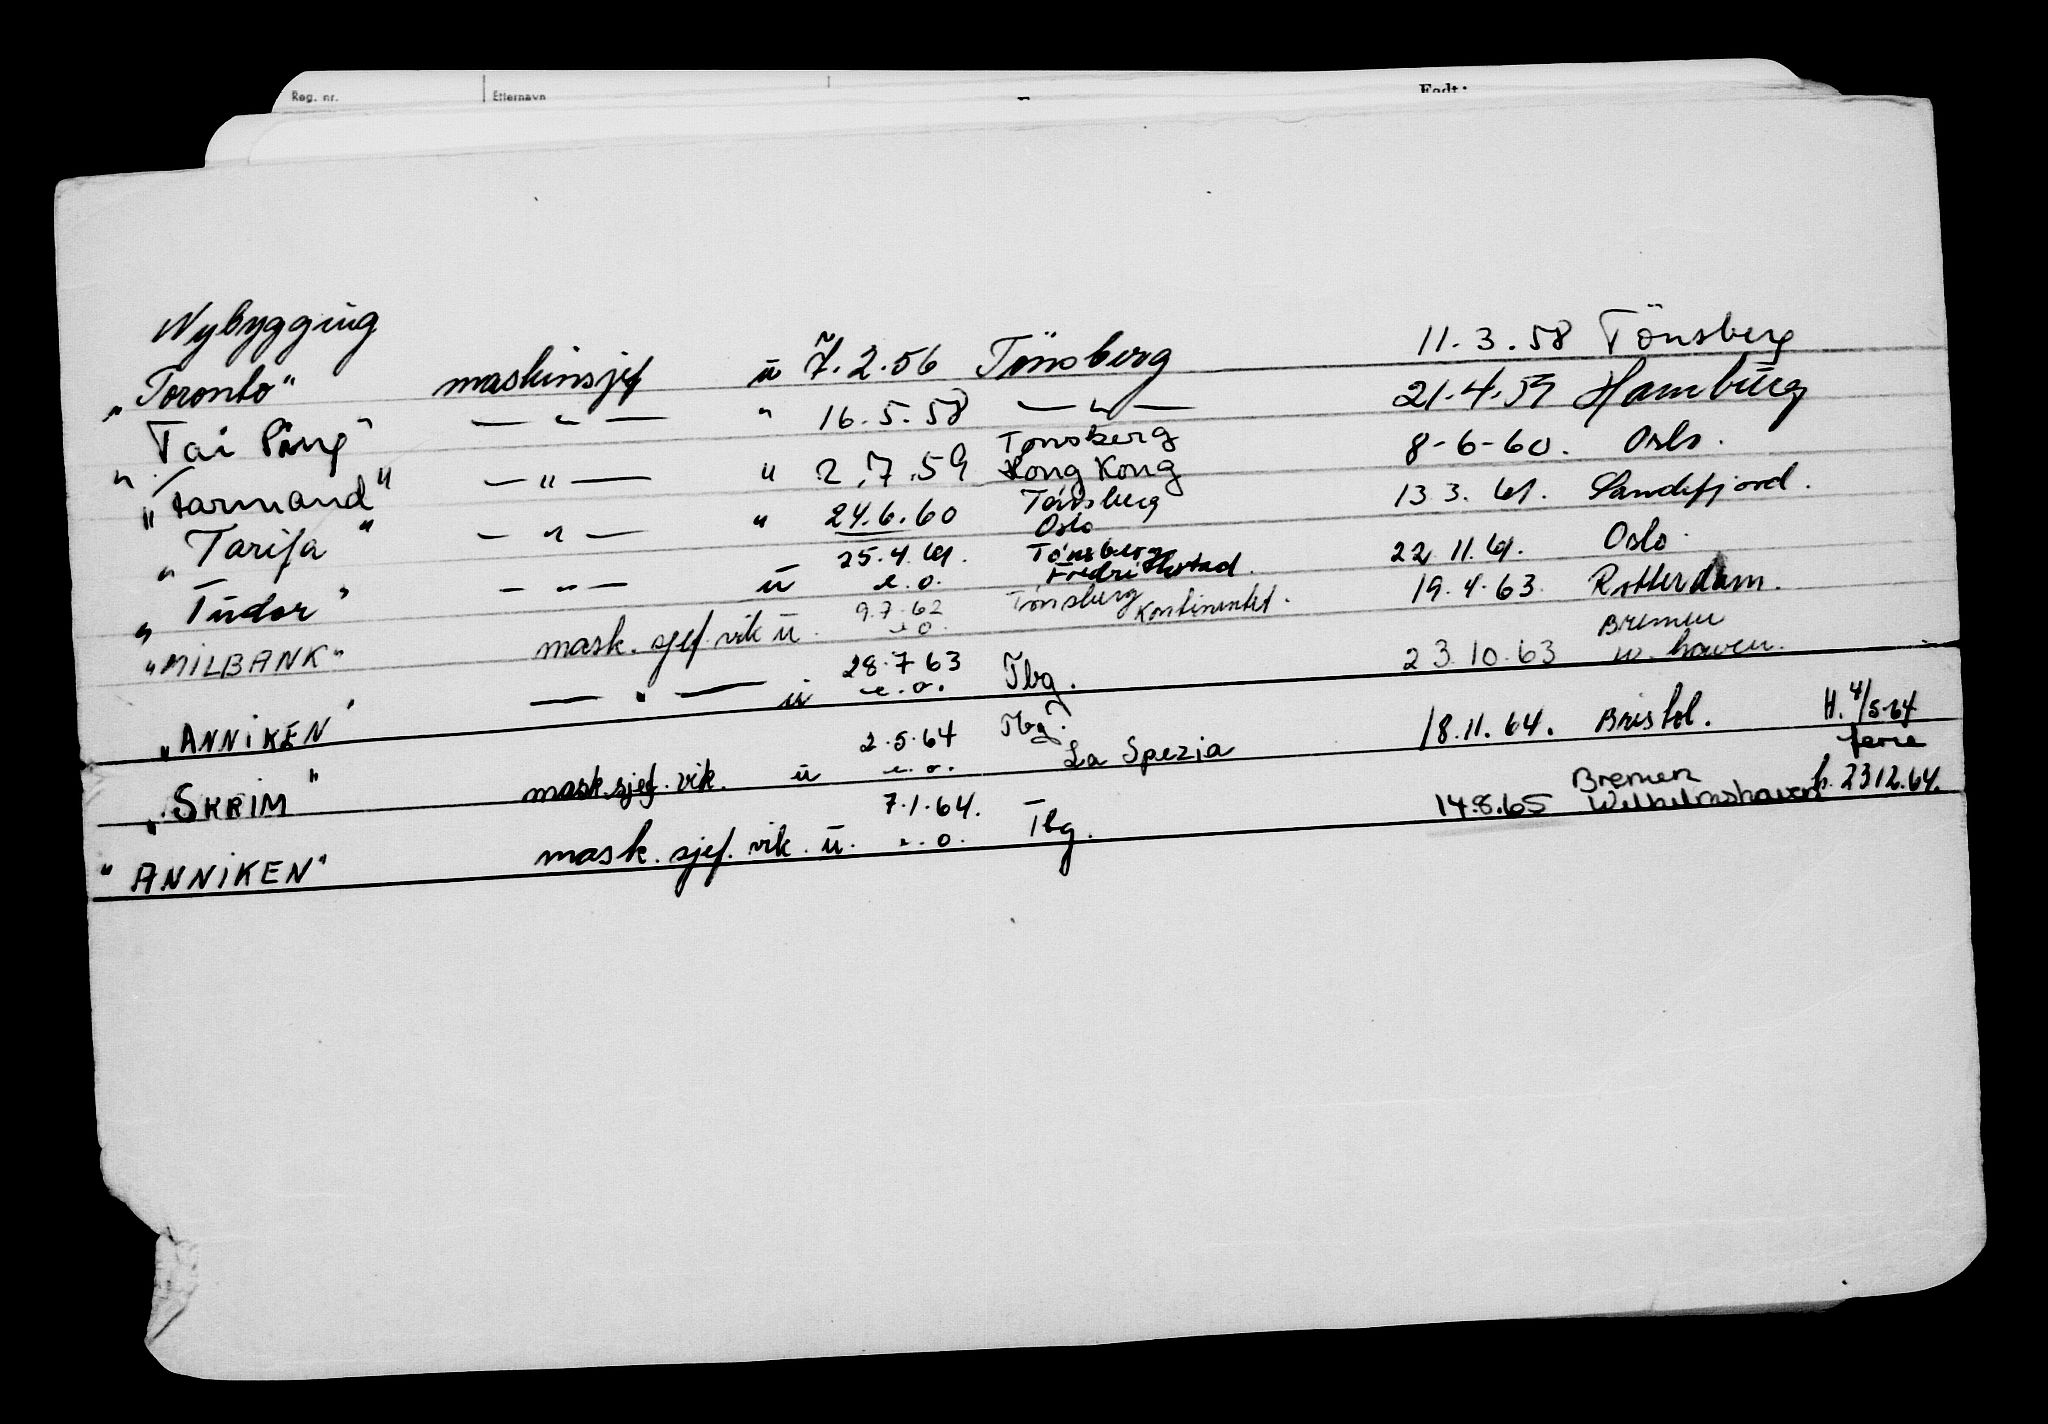 Reg. nr. Etternavn Født:
Nybygging
"Toronto" maskinsjef u 7.2.56 Tönsberg 11.3.58 Tönsberg
"Tai Ping" — " — " 16.5.58 — " — 21.4.59 Hamburg
"Tarmand" — " — " 2.7.59 Tønsberg Hong Kong 8-6-60. Oslo.
"Tarifa" — " — " 24.6.60 Tønsberg Oslo 13.3.61. Sandefjord.
"Tudor" — " — u 25.4.61. e.o. Tønsberg Fredrikstad. 22.11.61. Oslo.
"MILBANK" mask. sjef. vik u. 9.7.62 e.o. Tønsberg Kontinentet. 19.4.63. Rotterdam.
"ANNIKEN" — " — u 28.7.63 e.o. Tbg. 23.10.63 Bremen w. haven.
"SKRIM" mask.sjef. vik. u 2.5.64 e.o. Tbg. La Spezia 18.11.64. Bristol. H. 4/5-64 ferie
"ANNIKEN" mask. sjef. vik. u. 7.1.64. e.o. Tbg. 14.8.65 Bremen Wilhelmshaven h. 23.12.64.